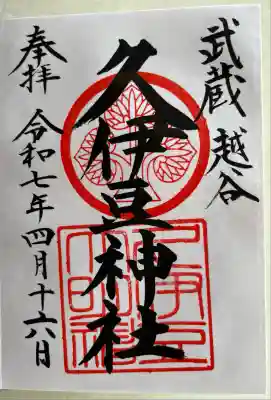 武蔵 越谷
久伊豆神社
奉拝 令和七年四月十六日